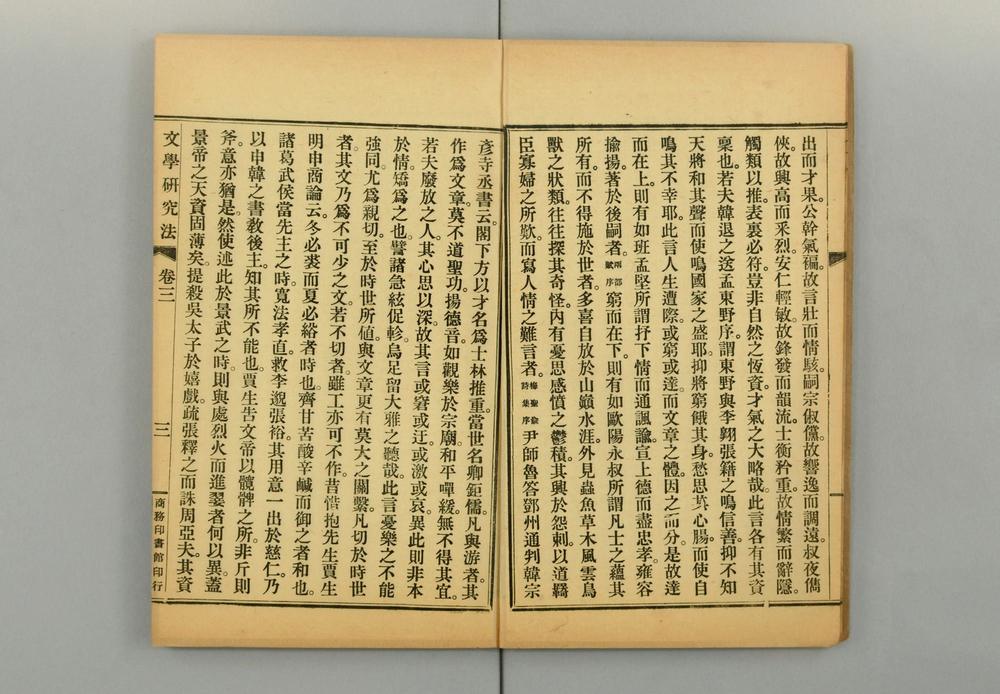 出而才果。公幹氣褊。故言壯而情駭。嗣宗俶儻。故響逸而調遠。叔夜儁
俠。故興高而采烈。安仁輕敏。故鋒發而韻流。士衡矜重。故情繁而辭隱。
觸類以推。表裏必符。豈非自然之恆資。才氣之大略哉。此言各有其資
稟也。若夫韓退之送孟東野序。謂東野與李翺張籍之鳴信善。抑不知
天將和其聲而使鳴國家之盛耶。抑將窮餓其身。愁思其心腸。而使自
鳴其不幸耶。此言人生遭際。或窮或達。而文章之體。因之而分。是故達
而在上。則有如班孟堅所謂抒下情而通諷諭。宣上德而盡忠孝。雍容
揄揚。著於後嗣者。兩都賦序窮而在下。則有如歐陽永叔所謂凡士之蘊其
所有。而不得施於世者。多喜自放於山巔水涯。外見蟲魚草木風雲鳥
獸之狀類。往往探其奇怪。內有憂思感憤之鬱積。其興於怨刺。以道羇
臣寡婦之所歎。而寫人情之難言者。梅聖俞詩集序尹師魯答鄧州通判韓宗
彥寺丞書云。閣下方以才名爲士林推重。當世名卿鉅儒。凡與游者。其
作爲文章。莫不道聖功。揚德音。如觀樂於宗廟。和平嘽緩。無不得其宜。
若夫廢放之人。其心思以深。故其言或窘或迂。或激或哀。異此則非本
於情。矯爲之也。譬諸急絃促軫。烏足留大雅之聽哉。此言憂樂之不能
強同。尤爲親切。至於時世所値。與文章更有莫大之關繫。凡切於時世
者。其文乃爲不可少之文。若不切者。雖工亦可不作。昔惜抱先生賈生
明申商論云。冬必裘而夏必綌者。時也。齊甘苦酸辛鹹而御之者。和也。
諸葛武侯當先主之時。寬法孝直。救李邈張裕。其用意一出於慈仁。乃
以申韓之書敎後主。知其所不能也。賈生告文帝以髖髀之所。非斤則
斧。意亦猶是。然使述此於景武之時。則與處烈火而進翣者何以異。蓋
景帝之天資固薄矣。提殺吳太子於嬉戲。疏張釋之而誅周亞夫。其資
文學研究法 卷三 三 商務印書館印行